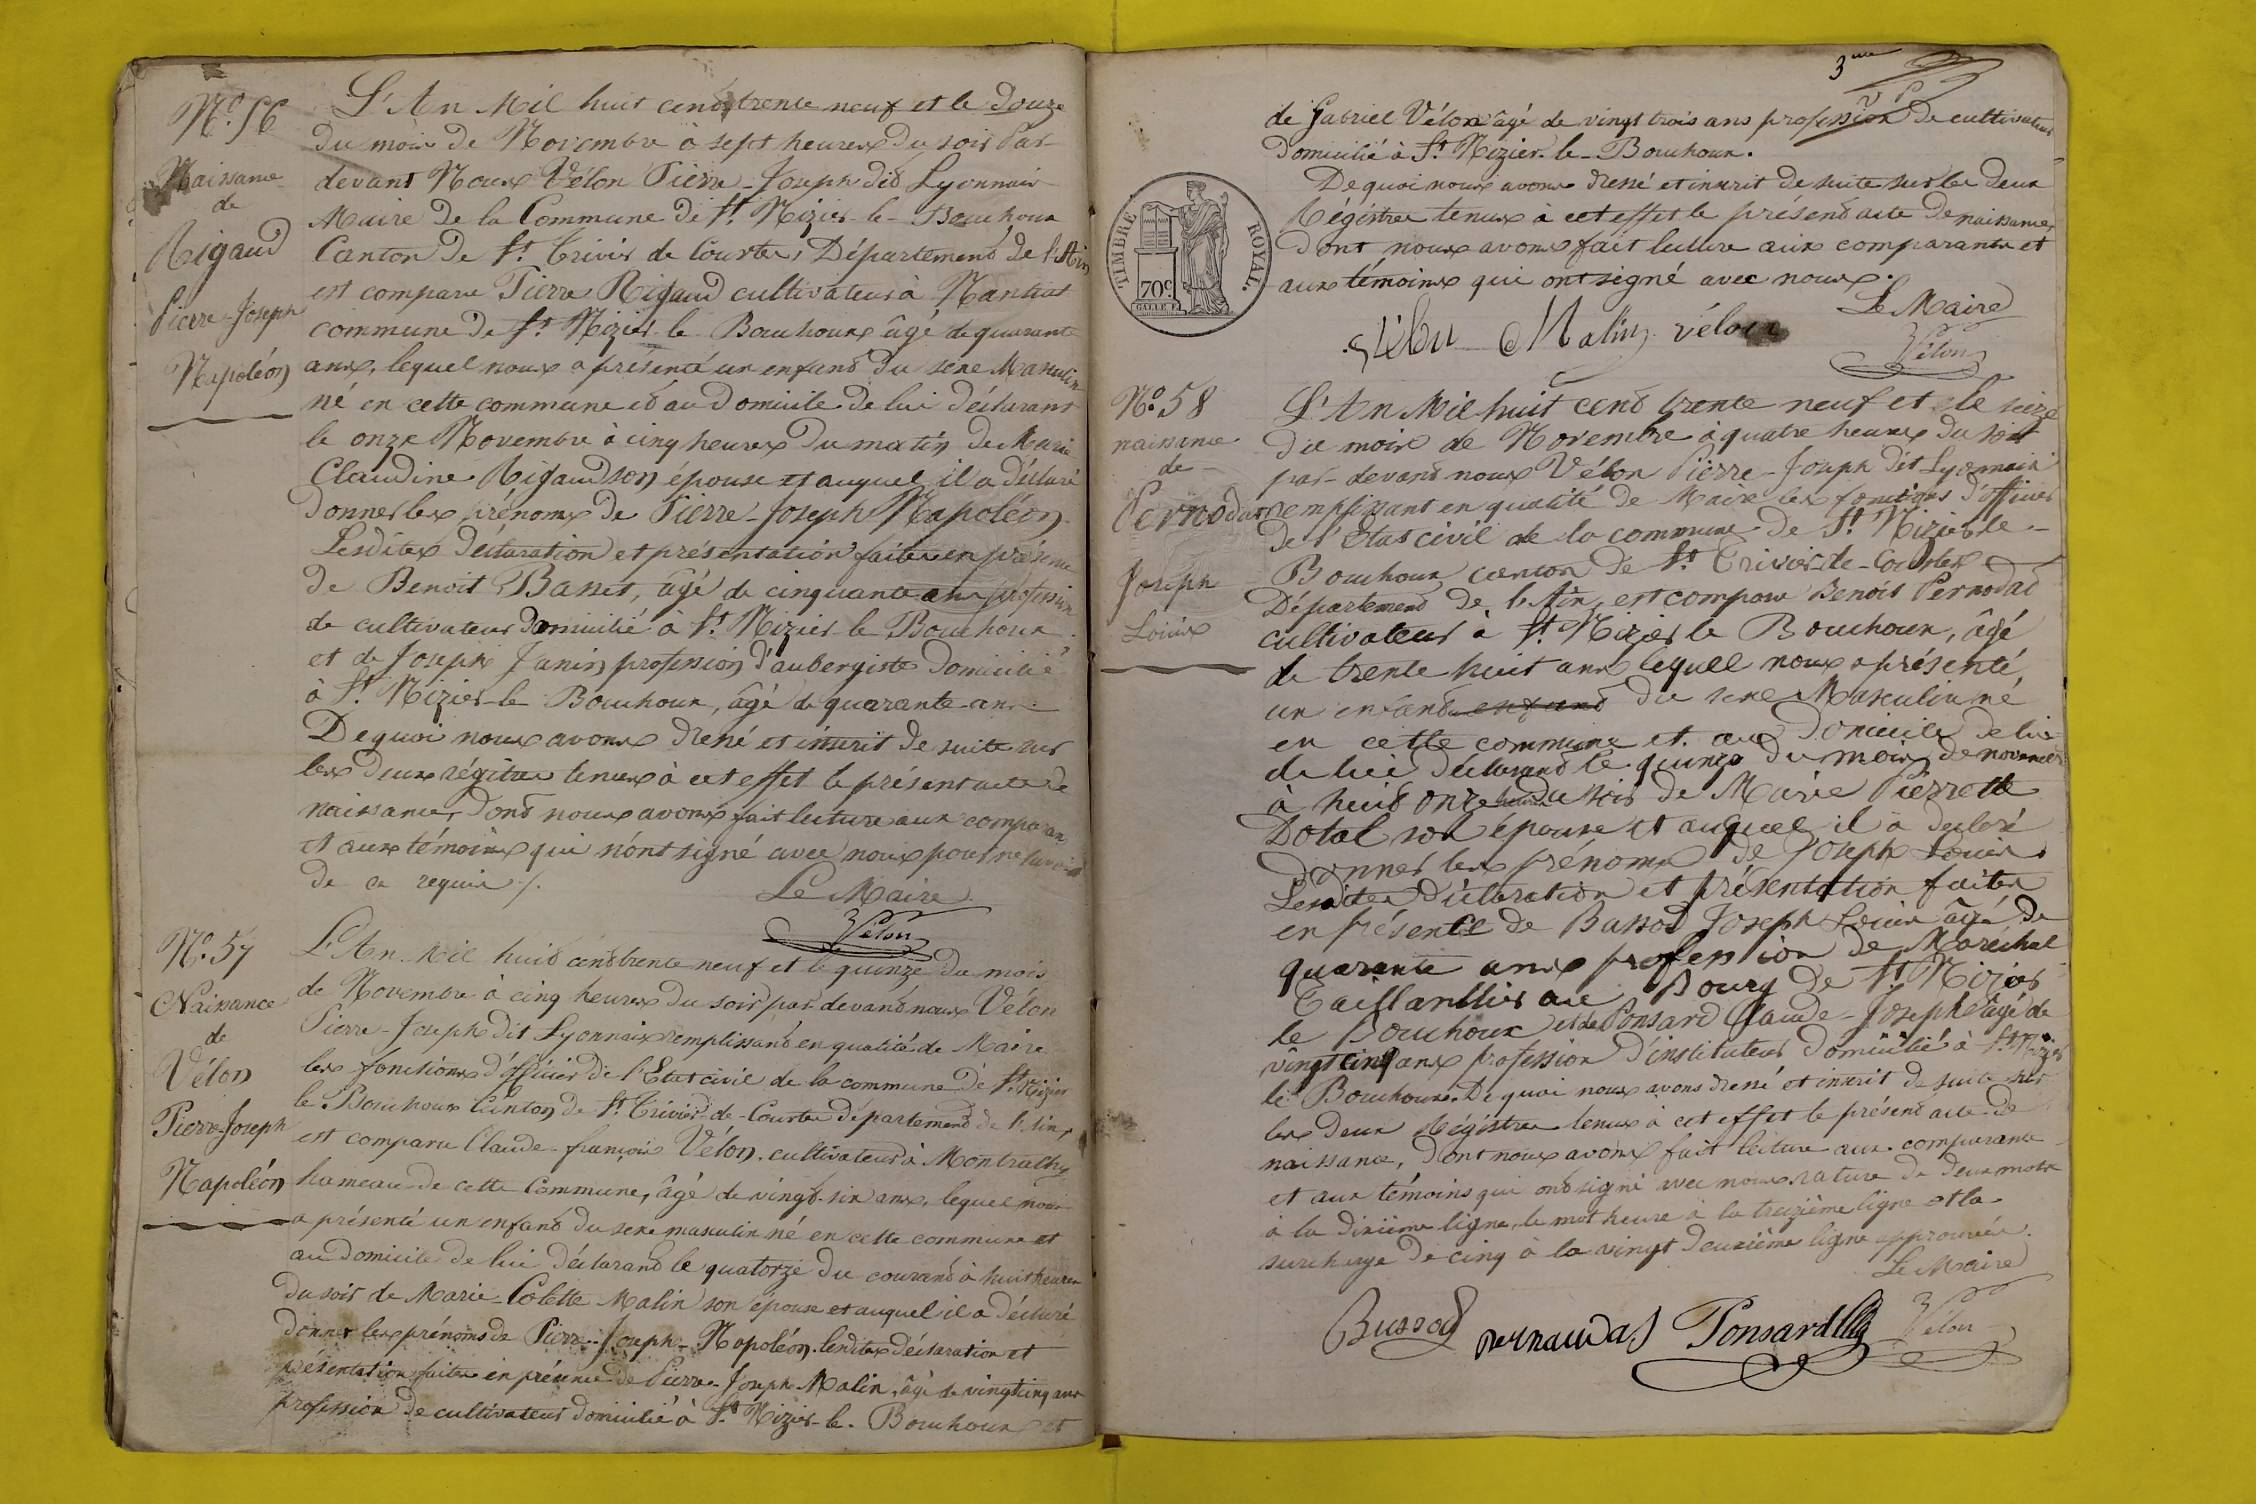 N.º 56
Naissance
de
Rigaud
Pierre-Joseph
Napoléon
L'An Mil huit cent trente neuf et le douze
du mois de Novembre à sept heures du soir Par-
devant Nous Vélon Pierre-Joseph dit Lyonnais
Maire de la Commune de St. Nizier-le-Bouchoux
Canton de St. Trivier de Courtes, Département de l'Ain
est comparu Pierre Rigaud cultivateur à Nantuat
commune de St. Nizier le Bouchoux âgé de quarante
ans, lequel nous a présenté un enfant du sexe Masculin
né en cette commune et au Domicile de lui déclarant
le onze Novembre à cinq heures du matin de Marie
Claudine Rigaud son épouse et auquel il a déclaré
donner les prénoms de Pierre-Joseph Napoléon.
Lesdites déclaration et présentation faites en présence
de Benoit Basset, âgé de cinquante ans profession
de cultivateur domicilié à St. Nizier le Bouchoux
et de Joseph Janin profession d'aubergiste domicilié
à St. Nizier-le Bouchoux, âgé de quarante ans.
De quoi nous avons dressé et inscrit de suite sur
les deux régitres tenus à cet effet le présent acte de
naissance, dont nous avons fait lecture aux comparans
et aux témoins qui n'ont signé avec nous pour ne savoir
de ce requis ./.
Le Maire
Vélon
N.º 57
Naissance
de
Vélon
Pierre-Joseph
Napoléon
L'An Mil huit cent trente neuf et le quinze du mois
de Novembre à cinq heures du soir par devant nous Vélon
Pierre-Joseph dit Lyonnais remplissant en qualité de Maire
les fonctions d'officier de l'Etat civil de la commune de St. Nizier
le Bouchoux Canton de St. Trivier-de-Courtes département de l'Ain,
est comparu Claude-françois Vélon, cultivateur à Montrachy
hameau de cette Commune, âgé de vingt-six ans, lequel nous
a présenté un enfant du sexe masculin né en cette commune et
au domicile de lui déclarant le quatorze du courant à huit heures
du soir de Marie-Colette Malin son épouse et auquel il a déclaré
donner les prénoms de Pierre-Joseph-Napoléon. lesdites déclaration et
présentation faites en présence de Pierre-Joseph Malin, âgé de vingt cinq ans
profession de cultivateur domicilié à St. Nizier-le-Bouchoux et
3me
de Gabriel Vélon âgé de vingt trois ans profession de cultivateur
domicilié à St. Nizier-le-Bouchoux.
De quoi nous avons dressé et inscrit de suite sur les deux
Régistres tenus à cet effet le présent acte de naissance,
dont nous avons fait lecture aux comparants et
aux témoins qui ont signé avec nous.
TIMBRE ROYAL.
70c
Le Maire
Malin vélon
Vélon
N.º 58
naissance
de
Pernodat
Joseph
Louis
L'An Mil huit cent trente neuf et le seize
du mois de Novembre à quatre heures du soir
par-devant nous Vélon Pierre-Joseph dit Lyonnais
remplissant en qualité de Maire les fonctions d'officier
de l'Etat civil de la commune de St. Nizier le-
Bouchoux canton de St. Trivier-de-Courtes
Département de l'Ain, est comparu Benoit Pernodat
cultivateur à St. Nizier le Bouchoux, âgé
de trente huit ans lequel nous a présenté
un enfant enfant du sexe Masculin né
en cette commune et au Domicile de lui
de lui déclarant le quinze du mois de novembre
à huit onze heure du soir de Marie Pierrette
Dotal son épouse et auquel il a déclaré
donner les prénoms de Joseph Louis.
Lesdites déclaration et présentation faites
en présence de Bussod Joseph Louis âgé de
quarante ans profession de Maréchal
Taillandier au Bourg de St. Nizier
le Bouchoux et de Ponsard Claude-Joseph âgé de
vingt cinq ans profession d'instituteur domicilié à St. Nizier
le Bouchoux. De quoi nous avons dressé et inscrit de suite sur
les deux Régistres tenus à cet effet le présent acte de
naissance, dont nous avons fait lecture aux comparants
et aux témoins qui ont signé avec nous. rature de deux mots
à la dixième ligne, le mot heure à la treizième ligne et la
surcharge de cinq à la vingt deuxième ligne approuvée.
Le Maire
Bussod pernaudat Ponsard Vélon